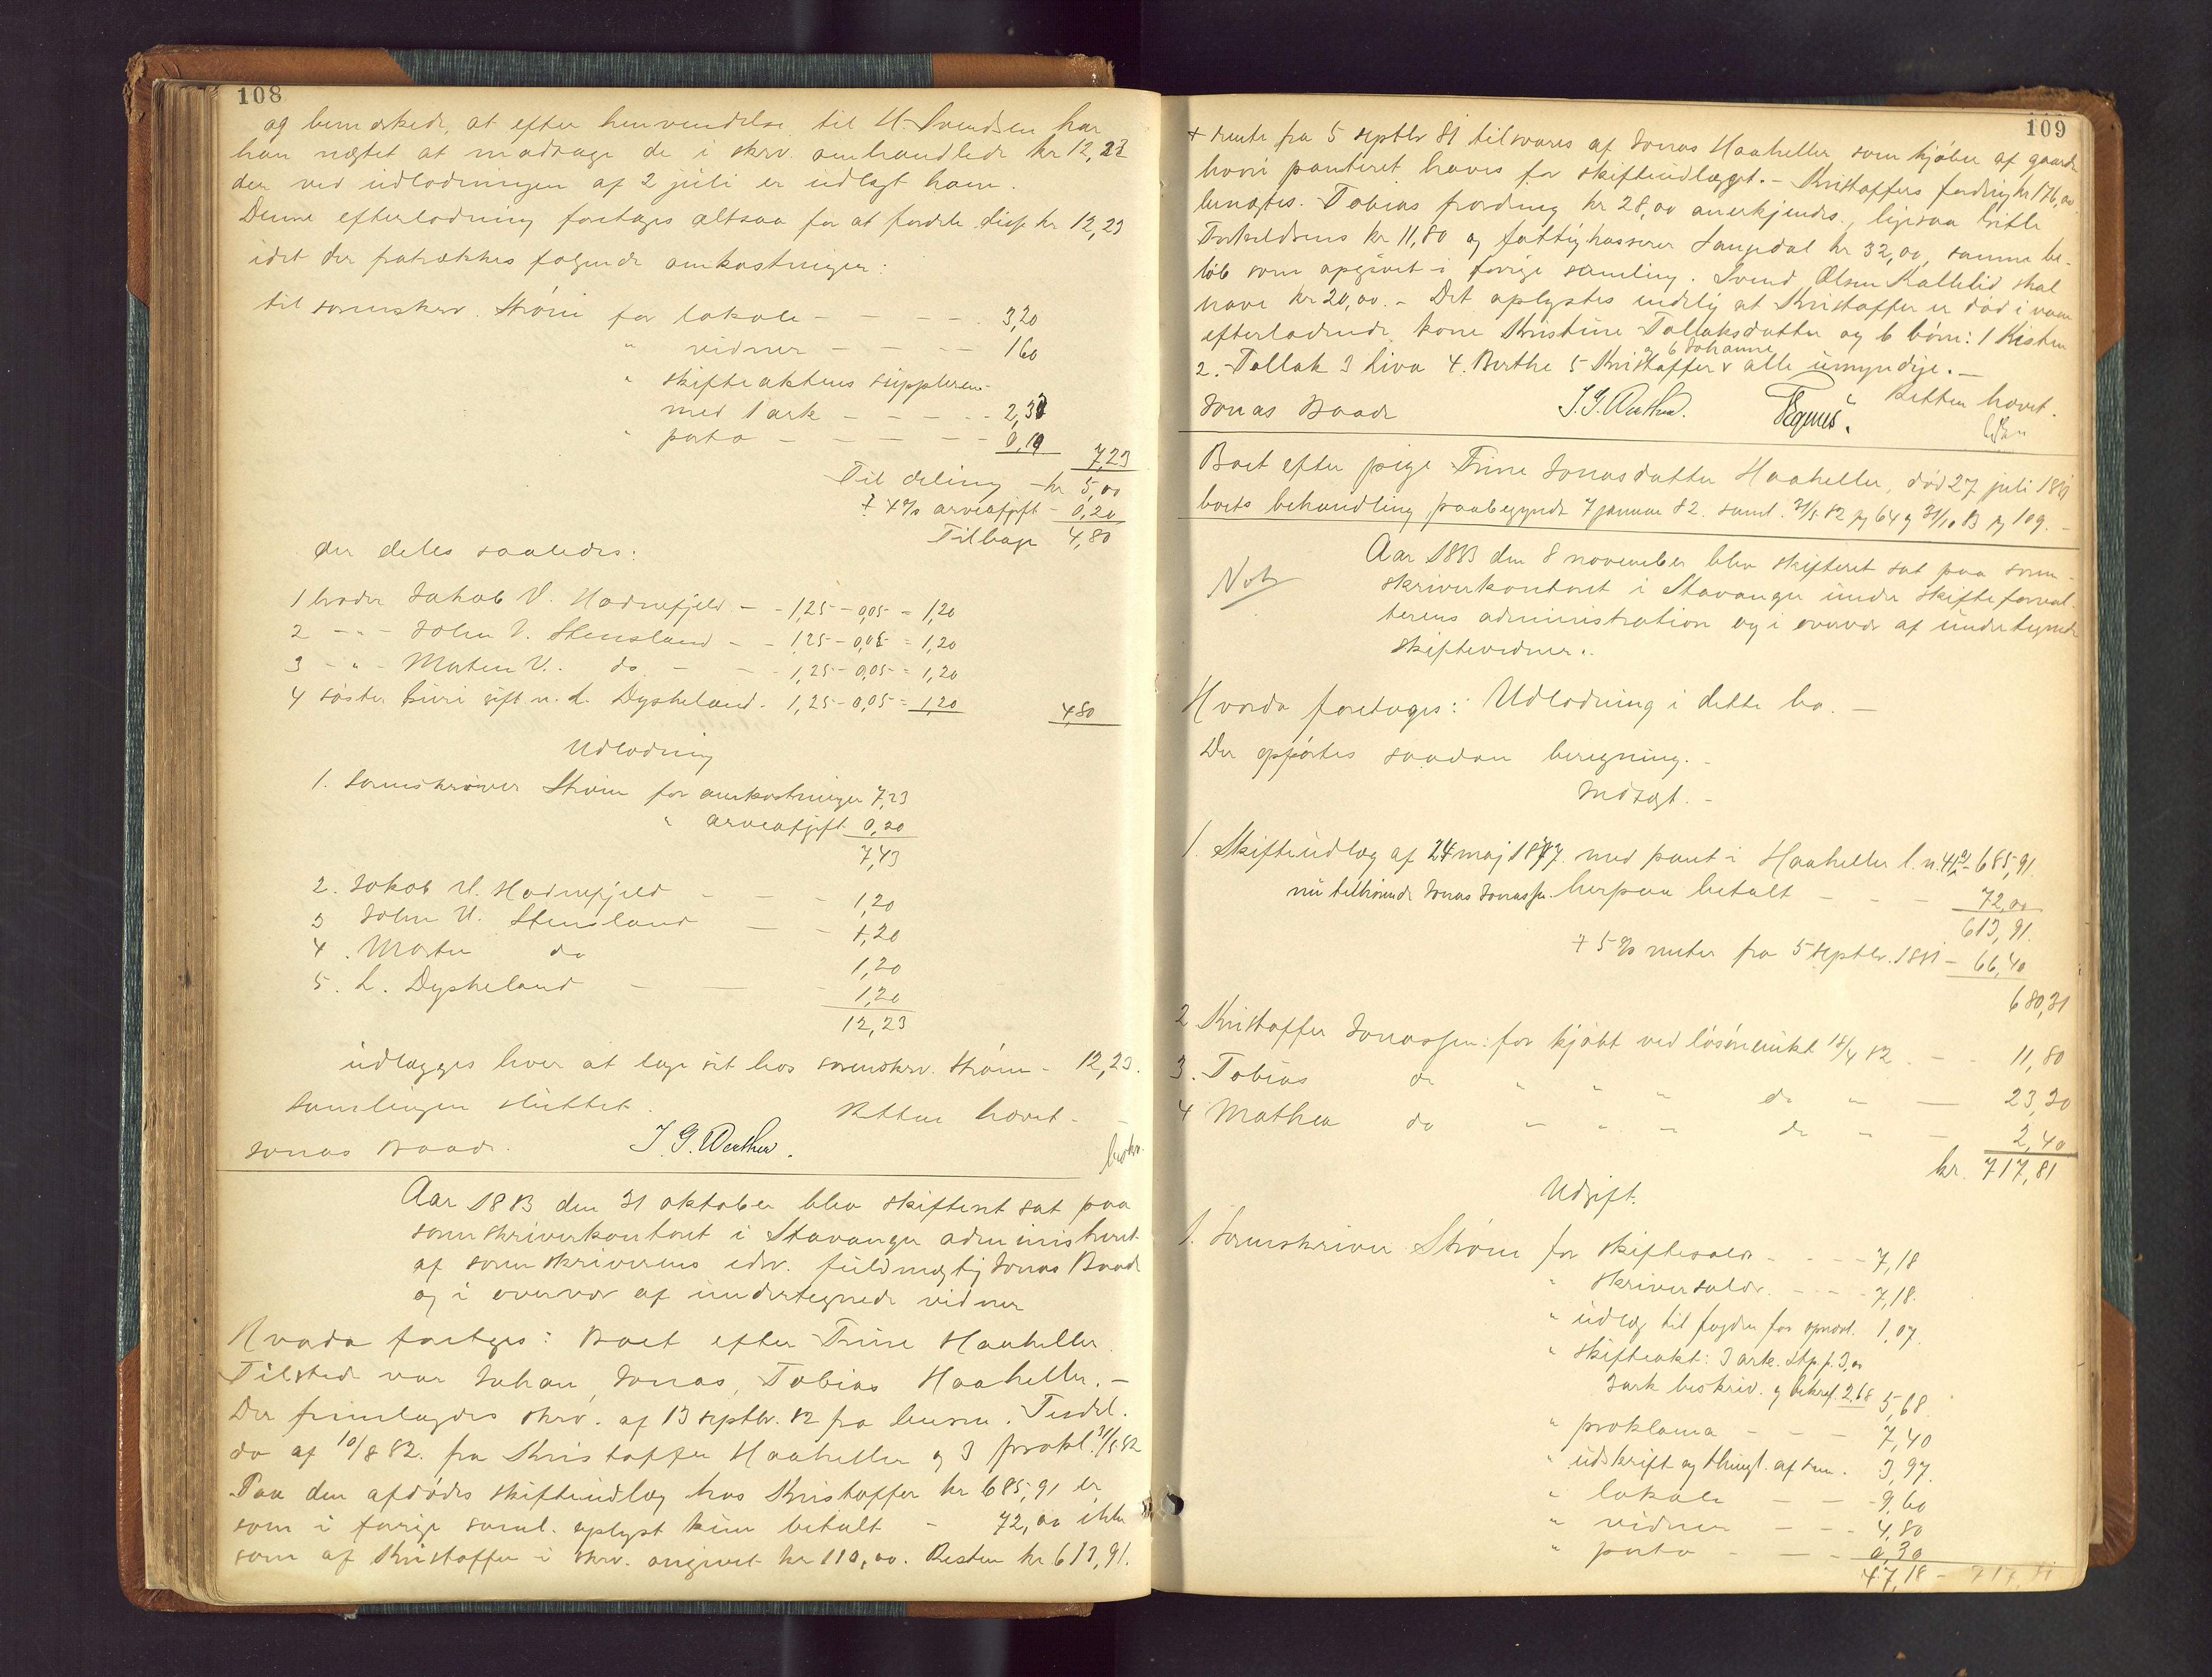 108
og bemærkede, at efter henvendelse til U. Svendsen har
han nægtet at modtage de i skrv. omhandlede kr 12,23
der ved udlodningen af 2 juli er udlagt ham.
Denne efterlodning foretages altsaa for at fordele disse kr 12,23
idet der fratrækkes følgende omkostninger:
til sorenskrv. Strøm for lokale - - - - 3,20
" vidner - - - - 1,60
" skifteaktens suppleren-
med 1 ark - - - - - 2,33
" porto - - - - - 0,10
7,23
Til deling - kr 5,00
÷ 4 % arveafgift - 0,20
Tilbage 4,80
der deles saaledes:
1 broder Jakob U. Hodnefjeld - - 1,25 - 0,05 = 1,20
2 - " - John U. Stensland - - 1,25 - 0,05 = 1,20
3 - " - Morten U. do - - 1,25 - 0,05 = 1,20
4 søster Guri gift m. L. Dyskeland - 1,25 - 0,05 = 1,20
4,80
Udlodning
1. Sorenskriver Strøm for omkostninger 7,23
" arveafgift 0,20
7,43
2. Jakob U. Hodnefjeld - - - 1,20
3 John U. Stensland - - 1,20
4. Morten do 1,20
5. L. Dyskeland - - - 1,20
12,23
udlægges hver at tage sit hos sorenskrv. Strøm - 12,23.
Samlingen sluttet. Retten hævet -
Jonas Baade. J. G. Werther.
beskr.
Aar 1883 den 31 oktober blev skifteret sat paa
sorenskriverkontoret i Stavanger administreret
af sorenskriverens edsv. fuldmægtig Jonas Baade
og i overvær af undertegnede vidner
Hvorda foretoges: Boet efter Trine Haaheller.
Tilstede var Johan, Jonas, Tobias Haaheller. -
Der fremlagdes skrv. af 13 septbr. 82 fra
do af 10/8 82. fra Kristoffer Haaheller og 3 prokl. 31/5 82
Paa den afdødes skifteudlæg hos Kristoffer kr 685,91 er
som i forrige saml. oplyst kun betalt - 72,00 ikke
som af Kristoffer i skrv. angivet kr 110,00. Resten kr 613,91.
109
+ rente fra 5 septbr 81 tilsvares af Jonas Haaheller som kjøber af gaarden
hvori panteret haves for skifteudlægget. - Kristoffers fordring kr 176,00
benægtes. Tobias fordring kr 28,00 anerkjendes, ligesaa
Torkeldsens kr 11,80 og fattigkasserer Langedal kr 32,00, samme be-
løb som opgivet i forrige samling. Svend Olsen Kallelid skal
have kr 20,00. - Det oplystes endelig at Kristoffer er død i vaar
efterladende kone Kristine Tollaksdatter og 6 børn: 1 Kisten
og 6 Johanne
2. Tollak 3 Liva 4. Berthe 5 Kristoffer v alle umyndige. -
Retten hævet.
Jonas Baade J. G. Werther. Tegnes.
Boet efter pige Trine Jonasdatter Haaheller, død 27 juli 1881
boets behandling paabegyndt 7 januar 82. saml. 31/5 82 pg 64 og 31/10 83 pg 109. -
Not
Aar 1883 den 8 november blev skifteret sat paa soren-
skriverkontoret i Stavanger under skifteforval-
terens administration og i overvær af undertegnede
skiftevidner.
Hvorda foretoges: Udlodning i dette bo. -
Der opførtes saadan beregning. -
Indtægt. -
1. Skifteudlæg af 24 maj 1877 med pant i Haaheller l. n. 41 - 685,91.
nu tilhørende Jonas Jonassen. herpaa betalt - - - 72,00
613,91.
+ 5 % renter fra 5 septbr. 1881 - 66,40
680,31
2 Kristoffer Jonassen: for kjøbt ved løsøreaukt 18/4 82 - - 11,80
3. Tobias do " " " do " - 23,30
4 Mathea do " " " do " - 2,40
kr. 717,81
Udgift.
1. Sorenskriver Strøm for skiftesalær - - - - 7,18
" skriversalær. - - - - 7,18.
" udlæg til fogden for 1,07.
" skifteakt: 3 ark. stp. f. 3,00
3 ark beskriv. og bekræf. 2,68 5,68
" proklama - - - 7,40
" udskrift og thingl. af 3,97.
" lokale - - - 9,60
" vidner - - - 4,80
" porto - - - 0,30
47,18 - 717,81